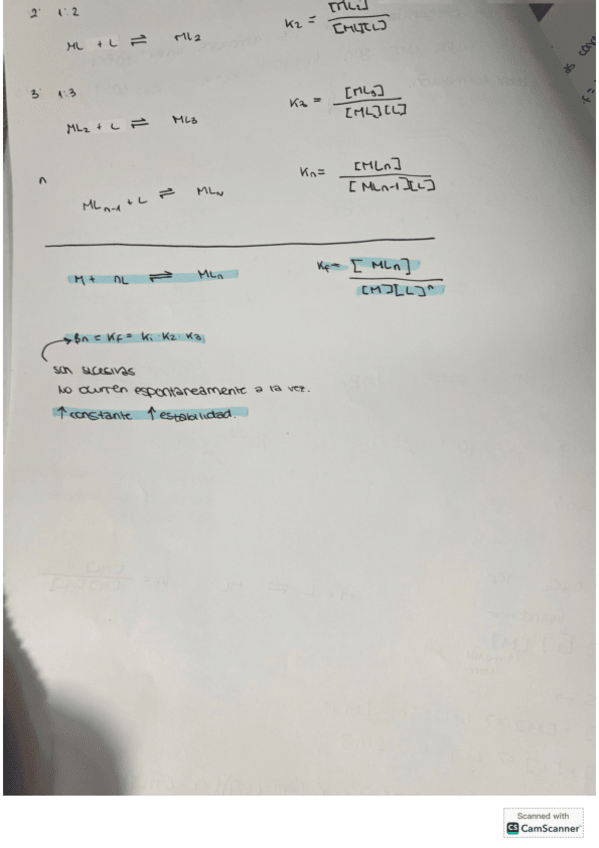 2. 1:2
[ML2]
ML + L ⇌ ML2 K2 = [ML][L]
3. 1:3
[ML3]
ML2 + L ⇌ ML3 K3 = [ML][L]
n
[MLn]
MLn-1 + L ⇌ MLn Kn = [MLn-1][L]
M + nL ⇌ MLn Kf = [MLn]
[M][L]ⁿ
βn = Kf = K1 · K2 · K3
son sucesivas
No ocurren espontaneamente a la vez.
↑ constante ↑ estabilidad.
Scanned with
CS CamScanner